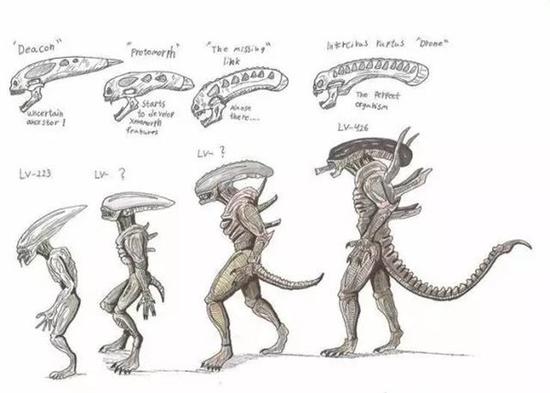 "Deacon"
uncertain
ancestor!
LV-223
"Protomorph"
starts
to develop
xenomorph
features
LV- ?
"The missing"
link
Almost
there....
LV- ?
"Drone"
The perfect
organism
LV-426